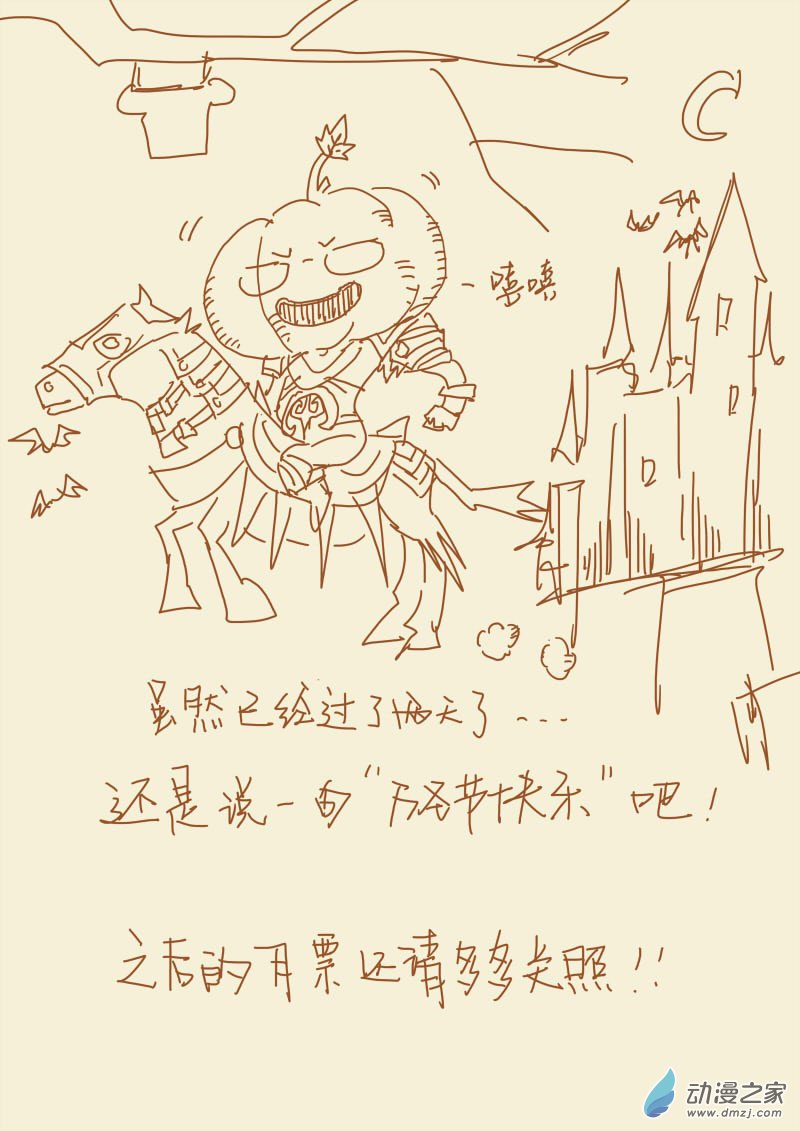 嘻嘻
虽然已经过了两天了...
还是说一句“万圣节快乐”吧!
之后的月票还请多多关照!!
动漫之家
www.dmzj.com